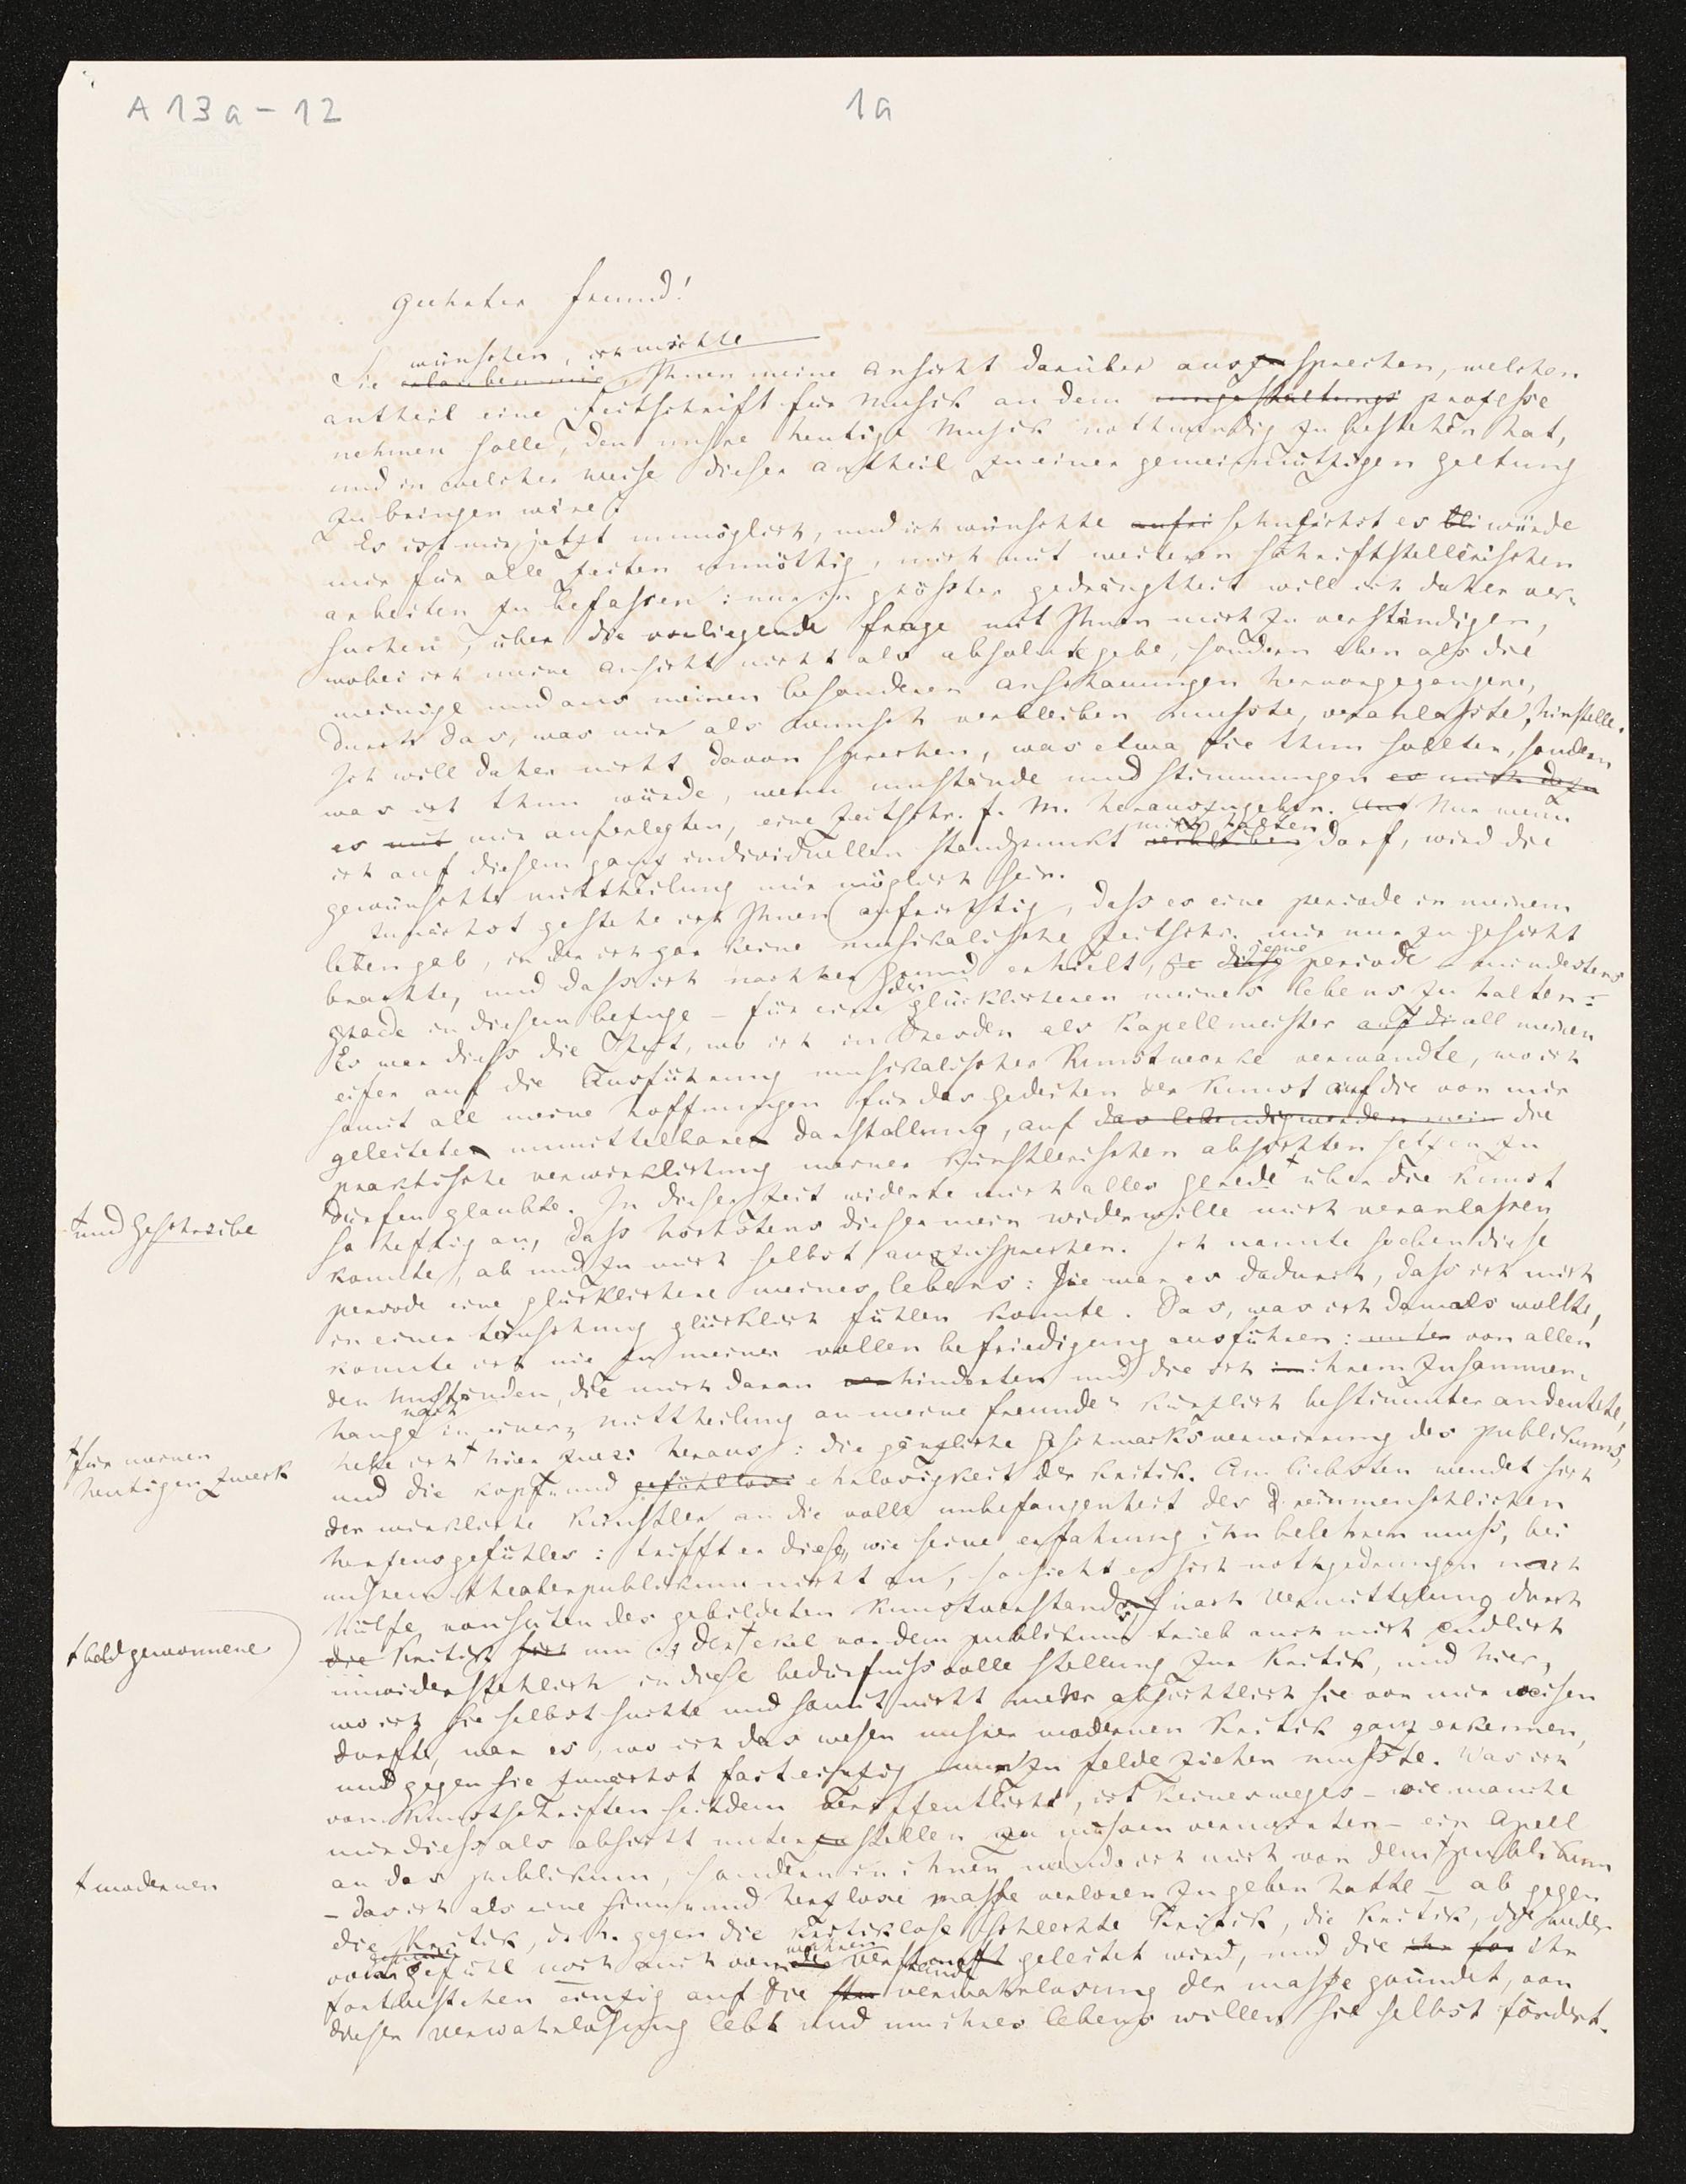 A 13 a - 12
1a
geehrter freund!
wünschen, ich möchte
Sie erlauben mir, Ihnen meine ansicht darüber auszusprechen, welchen
antheil eine Zeitschrift für Musik an dem umgestaltungs prozesse
nehmen solle, den unsre heutige Musik nothwendig zu bestehen hat,
und in welcher weise dieser antheil zu einer gemeinnützigen geltung
zu bringen wäre?
Es ist mir jetzt unmöglich, und ich wünschte sehnlichst es bli würde
mir für alle zeiten unnöthig, mich mit weiteren schriftstellerischen
arbeiten zu befassen: nur in größter gedrängtheit will ich daher ver-
suchen, über die vorliegende frage mit Ihnen mich zu verständigen,
wobei ich meine ansicht nicht als absolute gebe, sondern eben als die
meinige und aus meinen besonderen anschauungen hervorgegangene,
durch das, was mir als wunsch verbleiben musste, veranlasste, hinstelle.
Ich will daher nicht davon sprechen, was etwa sie thun sollten, sondern
was ich thun würde, wenn umstände und stimmungen es mich dazu
es mit mir auferlegten, eine Zeitschr. f. M. herauszugeben. Und Nur wenn
mich halten
ich auf diesem ganz individuellen standpunkt verbleiben darf, wird die
gewünschte mittheilung mir möglich sein.
Zunächst gestehe ich Ihnen aufrichtig, dass es eine periode in meinem
leben gab, in der ich gar keine musikalische zeitschr. mir nur zu gesicht
jene
brachte, und dass ich nachher grund erhielt, je diese periode – mindestens
der
grade in diesem bezuge – für eine glücklicheren meines lebens zu halten:
Es war diess die Zeit, wo ich in Dresden als Kapellmeister auf die all meinen
eifer auf die Ausführung musikalischer Kunstwerke verwandte, wo ich
somit all meine hoffnungen für das gedeihen der kunst auf die von mir
geleiteten unmittelbaren darstellung, auf das lebendigwerden mein die
praktische verwirklichung meiner künstlerischen absichten setzen zu
dürfen glaubte. In dieser Zeit widerte mich alles gerede † über die kunst
† und geschreibe
so heftig an, dass höchstens dieser mein widerwille mich veranlassen
konnte, ab und zu mich selbst auszusprechen. Ich nannte soeben diese
periode eine glücklichere meines lebens: sie war es dadurch, dass ich mich
in einer täuschung glücklich fühlen konnte. Das, was ich damals wollte,
konnte ich nie zu meiner vollen befriedigung ausführen: unter von allen
den Umständen, die mich daran verhinderten und die ich in ihrem zusammen-
hange in einer „mittheilung an meine freunde“ kürzlich bestimmter andeutete,
hebe ich † hier zwei heraus: die gänzliche geschmacksverwirrung des publikums,
† für meinen
heutigen zweck
und die kopf- und gefühllosi ehrlosigkeit der kritik. Am liebsten wendet sich
der wirkliche künstler an die volle unbefangenheit des reinmenschlichen
herzensgefühles: trifft er diese, wie seine erfahrung ihn belehren muss, bei
unsrem theaterpublikum nicht an, so sieht er sich nothgedrungen nach
hülfe von seiten des gebildeten kunstverstandes, nach Vermittelung durch
die Kritik um. Der † ekel vor dem publikum trieb auch mich endlich
† bald gewonnene
unwiderstehlich in diese bedürfnissvolle stellung zur Kritik, und hier,
wo ich sie selbst suchte und somit nicht mehr absichtlich sie von mir weisen
durfte, war es, wo ich das wesen unsrer modernen Kritik ganz erkennen,
und gegen sie zunächst fast einzig nur zu felde ziehen musste. Was ich
von Kunstschriften seitdem veröffentlicht, ist keinesweges – wie manche
mir diess als absicht unterzustellen zu müssen vermeinten – ein Apell
an das publikum, sondern in ihnen wende ich mich von dem † publikum
† modernen
– das ich als eine sinn- und herzlose masse verloren zu geben hatte – ab gegen
die Kritik, d. h. gegen die kritiklose schlechte Kritik, die Kritik, die weder
wahren
vom gefühl noch auch vom verstand geleitet wird, und die ihr
fortbestehen einzig auf die verwahrlosung der masse gründet, von
dieser verwahrlosung lebt und um ihres lebens willen sie selbst fördert.